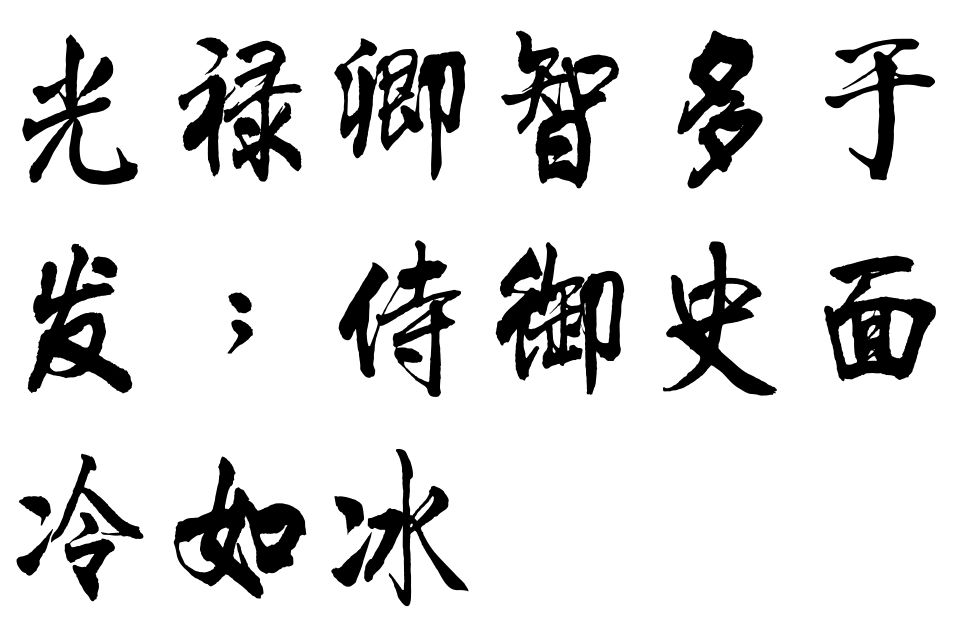 光禄卿智多于
发；侍御史面
冷如冰